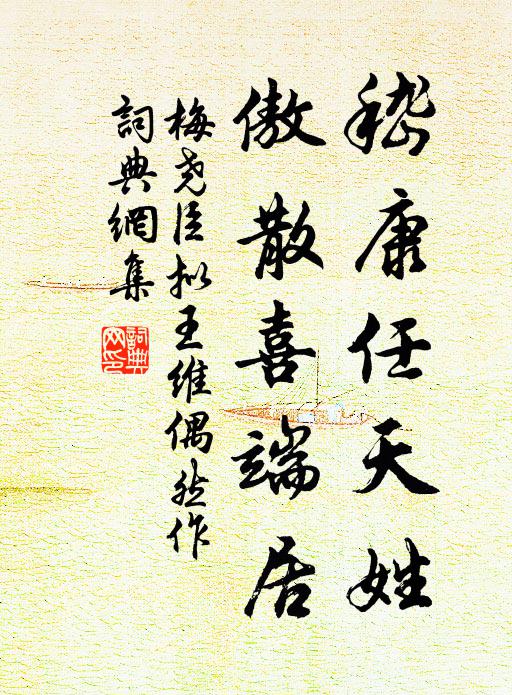 嵇康任天姓
傲散喜端居
梅尧臣拟王维偶然作
詞典網集
詞典网印